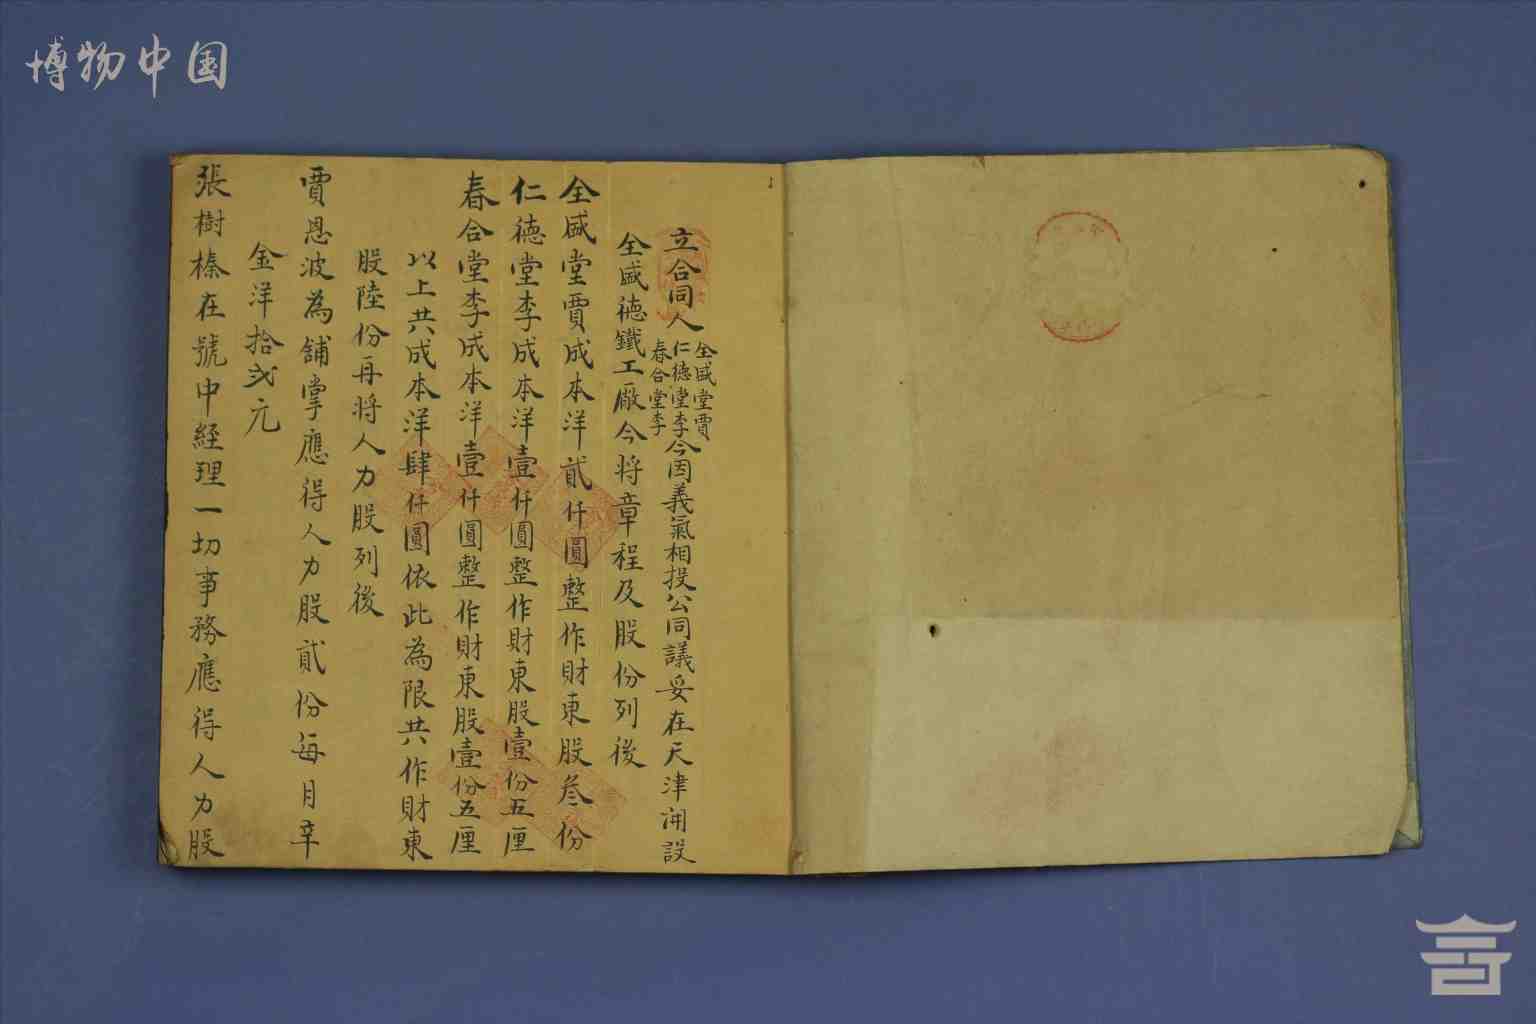 博物中国
立合同人全盛堂賈仁德堂李春合堂李今因義氣相投公同議妥在天津開設
全盛德鐵工廠今将章程及股份列後
全盛堂賈成本洋貳仟圓整作財東股叁份
仁德堂李成本洋壹仟圓整作財東股壹份五厘
春合堂李成本洋壹仟圓整作財東股壹份五厘
以上共成本洋肆仟圓依此為限共作財東
股陸份再将人力股列後
賈恩波為舖掌應得人力股貳份每月辛
金洋拾弍元
張樹榛在號中経理一切事務應得人力股